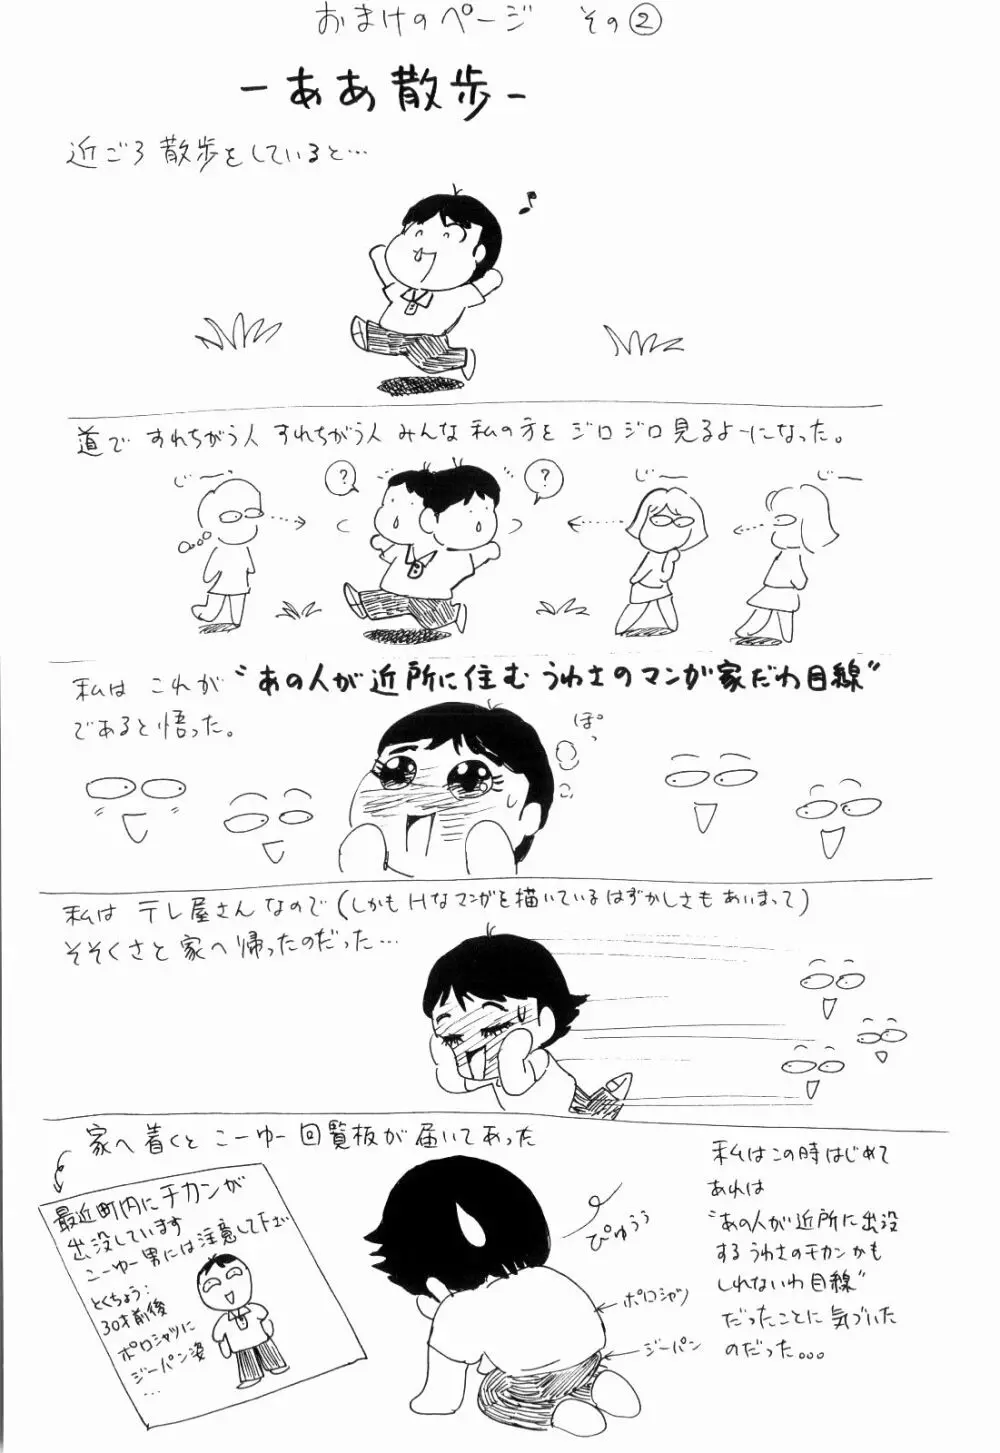 おまけのページ その②
－ああ散歩－
近ごろ散歩をしていると…
♪
道ですれちがう人すれちがう人みんな私の方をジロジロ見るよーになった。
じー
?
?
じー
じー
私はこれが“あの人が近所に住むうわさのマンガ家だわ目線”
であると悟った。
ぽっ
私はテレ屋さんなので(しかもHなマンガを描いているはずかしさもあいまって)
そそくさと家へ帰ったのだった…
家へ着くとこーゆー回覧板が届いてあった
最近町内にチカンが
出没しています
こーゆー男には注意して下さい
とくちょう:
30才前後
ポロシャツに
ジーパン姿
…
ぴゅうぅ
ポロシャツ
ジーパン
私はこの時はじめて
あれは
“あの人が近所に出没
するうわさのチカンかも
しれないわ目線”
だったことに気づいた
のだった…